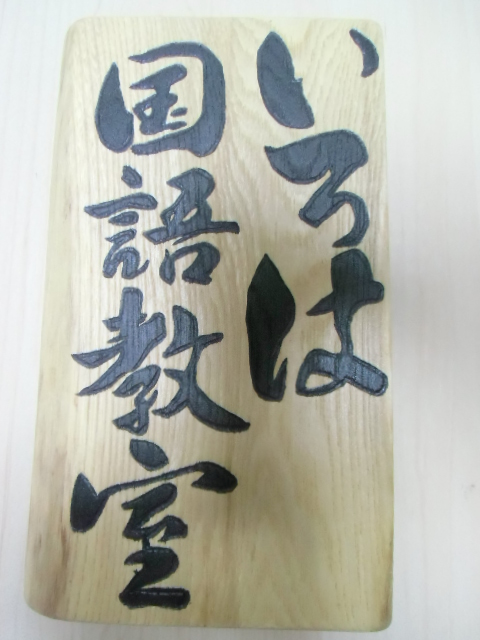 いろは
国語教室